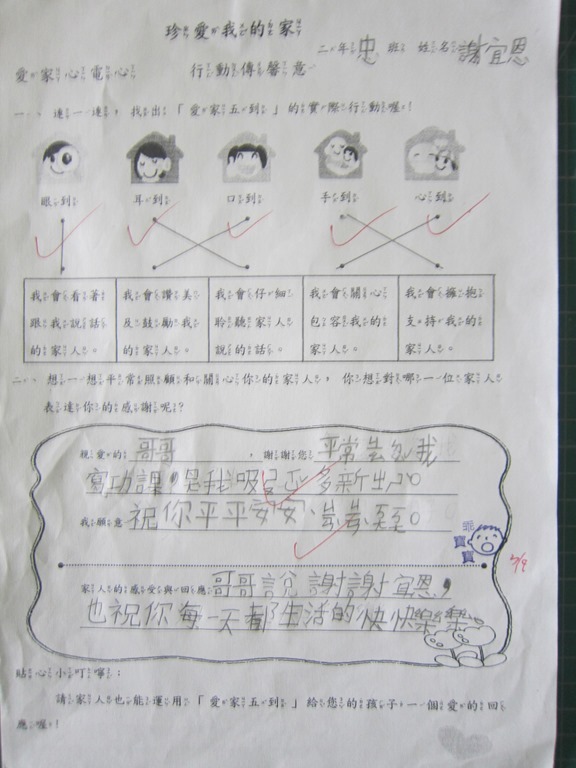 珍愛我的家
二年忠班 姓名謝宜恩
愛家心電心 行動傳馨意
一、連一連，找出「愛家五到」的實際行動喔！
眼到 耳到 口到 手到 心到
我會看著跟我說話的家人。
我會讚美及鼓勵我的家人。
我會仔細聆聽家人說的話。
我會關心包容我的家人。
我會擁抱支持我的家人。
二、想一想平常照顧和關心你的家人，你想對哪一位家人
表達你的感謝呢？
親愛的哥哥，謝謝您平常
寫功課，是我吸
我願意祝你平平安安、
乖寶寶
5/9
家人的感受與回應哥哥說謝謝宜恩，
也祝你每一天都生活的快快樂樂。
貼心小叮嚀：
請家人也能運用「愛家五到」給您的孩子一個愛的回
應喔！